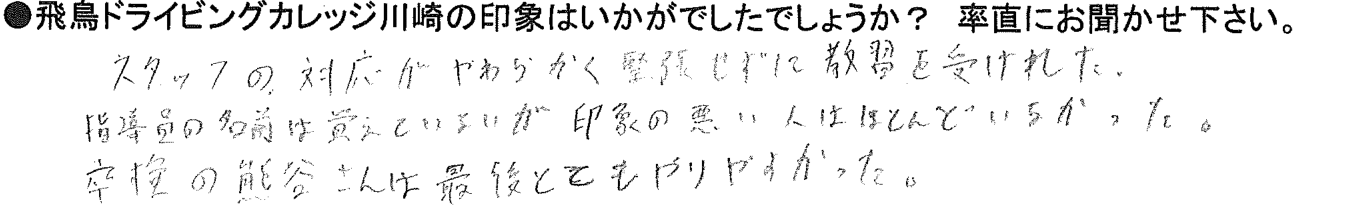 ●飛鳥ドライビングカレッジ川崎の印象はいかがでしたでしょうか？ 率直にお聞かせ下さい。
スタッフの対応がやわらかく緊張せずに教習を受けれた。
指導員の名前は覚えていないが印象の悪い人はほとんどいなかった。
卒検の熊谷さんは最後とてもやりやすかった。